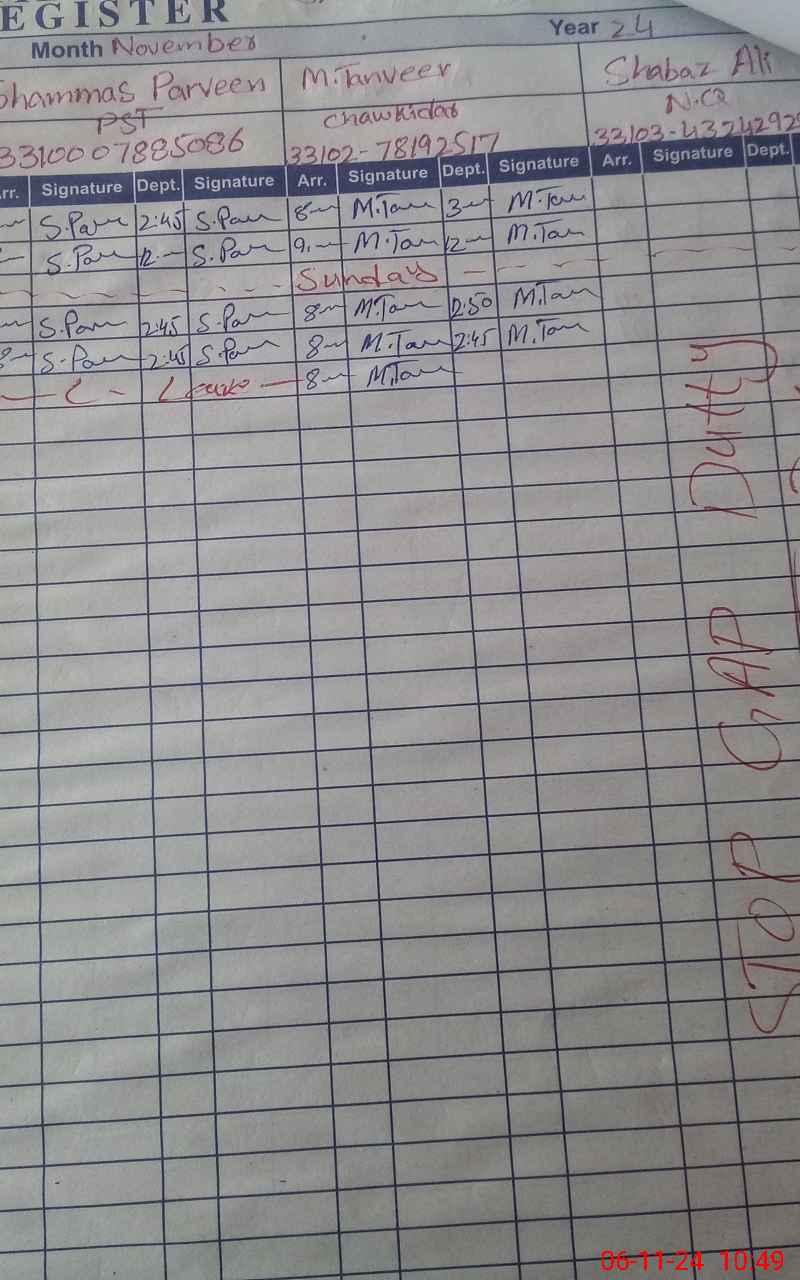 EGISTER
Month November Year 24
Shammas Parveen M.Tanveer Shabaz Ali
PST Chawkidar N.Q
3310007885086 33102-78192517 33103-4324292
rr. Signature Dept. Signature Arr. Signature Dept. Signature Arr. Signature Dept.
S.Par 2:45 S.Par 8 M.Tan 3 M.Tan
S.Par 12 S.Par 9 M.Tan 12 M.Tan
Sunday
S.Par 2:45 S.Par 8 M.Tan 2:50 M.Tan
8 S.Par 2:45 S.Par 8 M.Tan 2:45 M.Tan
Leave 8 M.Tan
STOP GAP Dutty
06-11-24 10:49